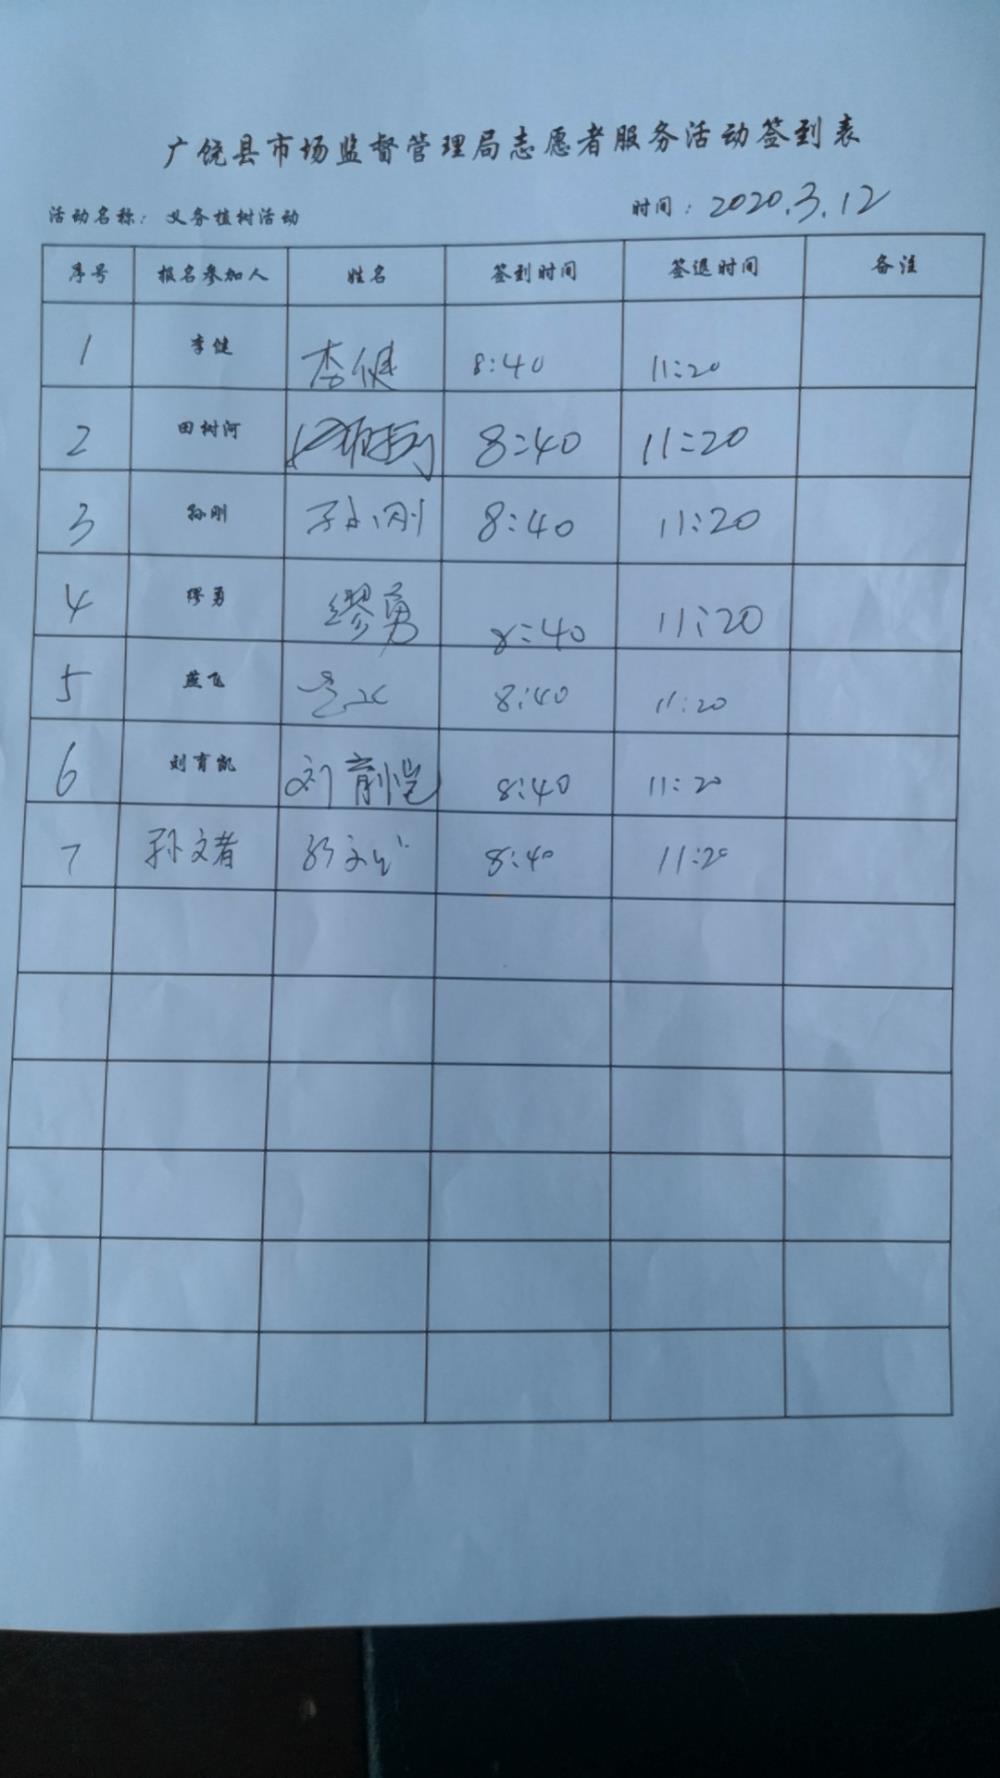 广饶县市场监督管理局志愿者服务活动签到表
活动名称：义务植树活动 时间：2020.3.12
序号 报名参加人 姓名 签到时间 签退时间 备注
1 李健 李健 8:40 11:20
2 田树河 8:40 11:20
3 孙刚 孙刚 8:40 11:20
4 缪勇 缪勇 8:40 11:20
5 燕飞 8:40 11:20
6 刘育凯 刘育恺 8:40 11:20
7 孙文者 8:40 11:20